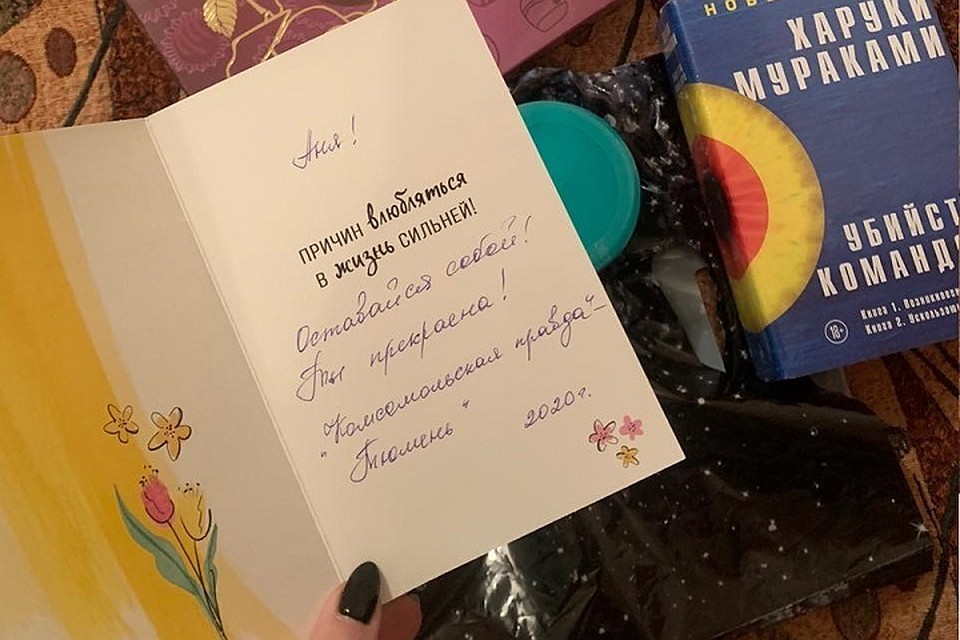 Аня!
ПРИЧИН влюбляться
В жизнь СИЛЬНЕЙ!
Оставайся собой!
Ты прекрасна!
"Комсомольская правда"-
"Тюмень" 2020г.
ХАРУКИ
МУРАКАМИ
УБИЙСТ
КОМАНД
18+
Книга 1. Возникнове
Книга 2. Ускользаю